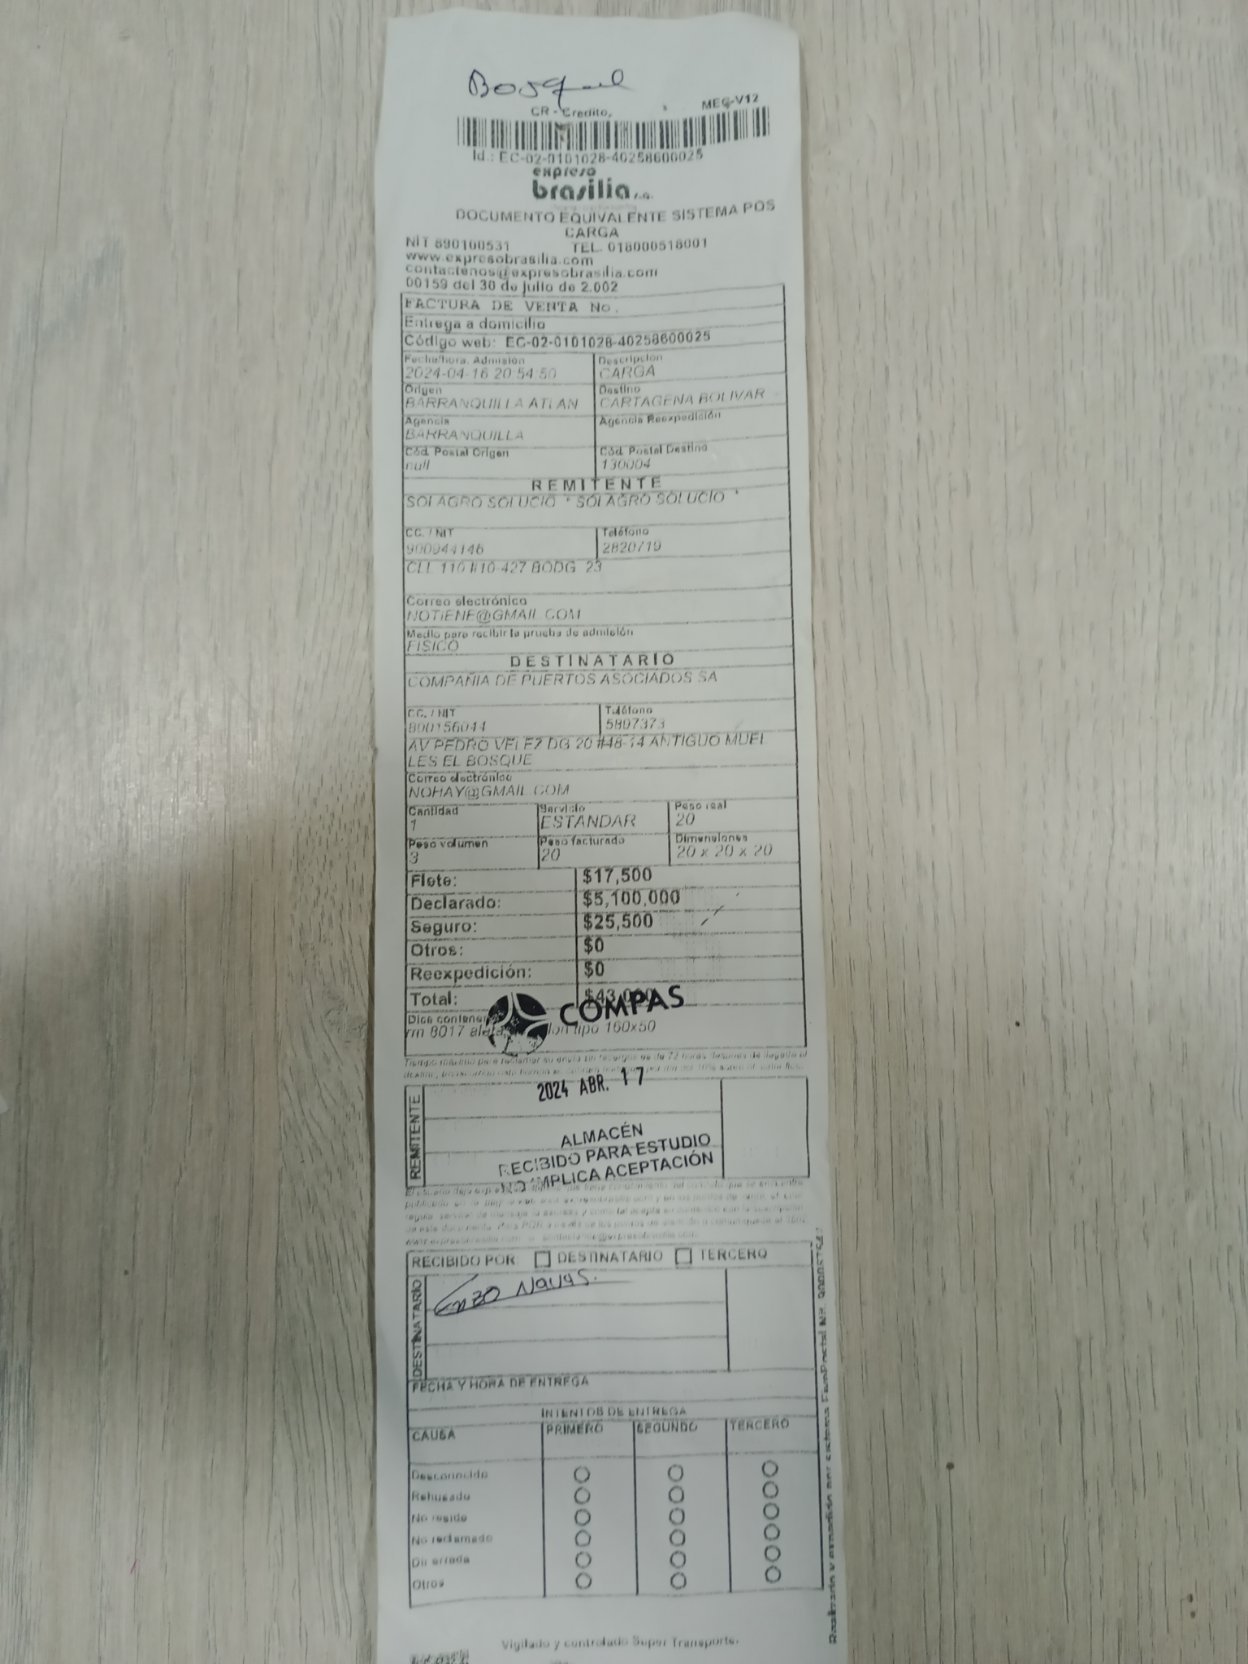 Bosque
CR - Credito, MEG-V12
Id.: EC-02-0101028-40258600025
expreso
brasilia s.a.
DOCUMENTO EQUIVALENTE SISTEMA POS
CARGA
NIT 890100531 TEL. 018000518001
www.expresobrasilia.com
contactenos@expresobrasilia.com
00159 del 30 de julio de 2.002
FACTURA DE VENTA No.
Entrega a domicilio
Código web: EC-02-0101028-40258600025
Fecha/hora. Admisión Descripcion
2024-04-16 20:54:50 CARGA
Origen Destino
BARRANQUILLA ATLAN CARTAGENA BOLIVAR
Agencia Agencia Reexpedición
BARRANQUILLA
Cód. Postal Origen Cód. Postal Destino
null 130004
REMITENTE
SOLAGRO SOLUCIO * SOLAGRO SOLUCIO *
CC. / NIT Teléfono
900944146 2820719
CLL 110 #10-427 BODG 23
Correo electrónico
NOTIENE@GMAIL.COM
Medio para recibir la prueba de admisión
FISICO
DESTINATARIO
COMPAÑIA DE PUERTOS ASOCIADOS SA
CC. / NIT Teléfono
800156044 5897373
AV PEDRO VELEZ DG 20 #48-14 ANTIGUO MUEL
LES EL BOSQUE
Correo electrónico
NOHAY@GMAIL.COM
Cantidad Servicio Peso real
1 ESTANDAR 20
Peso volumen Peso facturado Dimensiones
3 20 20 x 20 x 20
Flete: $17,500
Declarado: $5,100,000
Seguro: $25,500
Otros: $0
Reexpedición: $0
Total: $43,000
COMPAS
Dice contener
rm 8017 tipo 160x50
2024 ABR. 17
REMITENTE
ALMACÉN
RECIBIDO PARA ESTUDIO
NO IMPLICA ACEPTACIÓN
RECIBIDO POR DESTINATARIO TERCERO
DESTINATARIO
Enzo Navas.
FECHA Y HORA DE ENTREGA
INTENTOS DE ENTREGA
CAUSA PRIMERO SEGUNDO TERCERO
Desconocido
Rehusado
No reside
No reclamado
Dir errada
Otros
Vigilado y controlado Super Transporte.